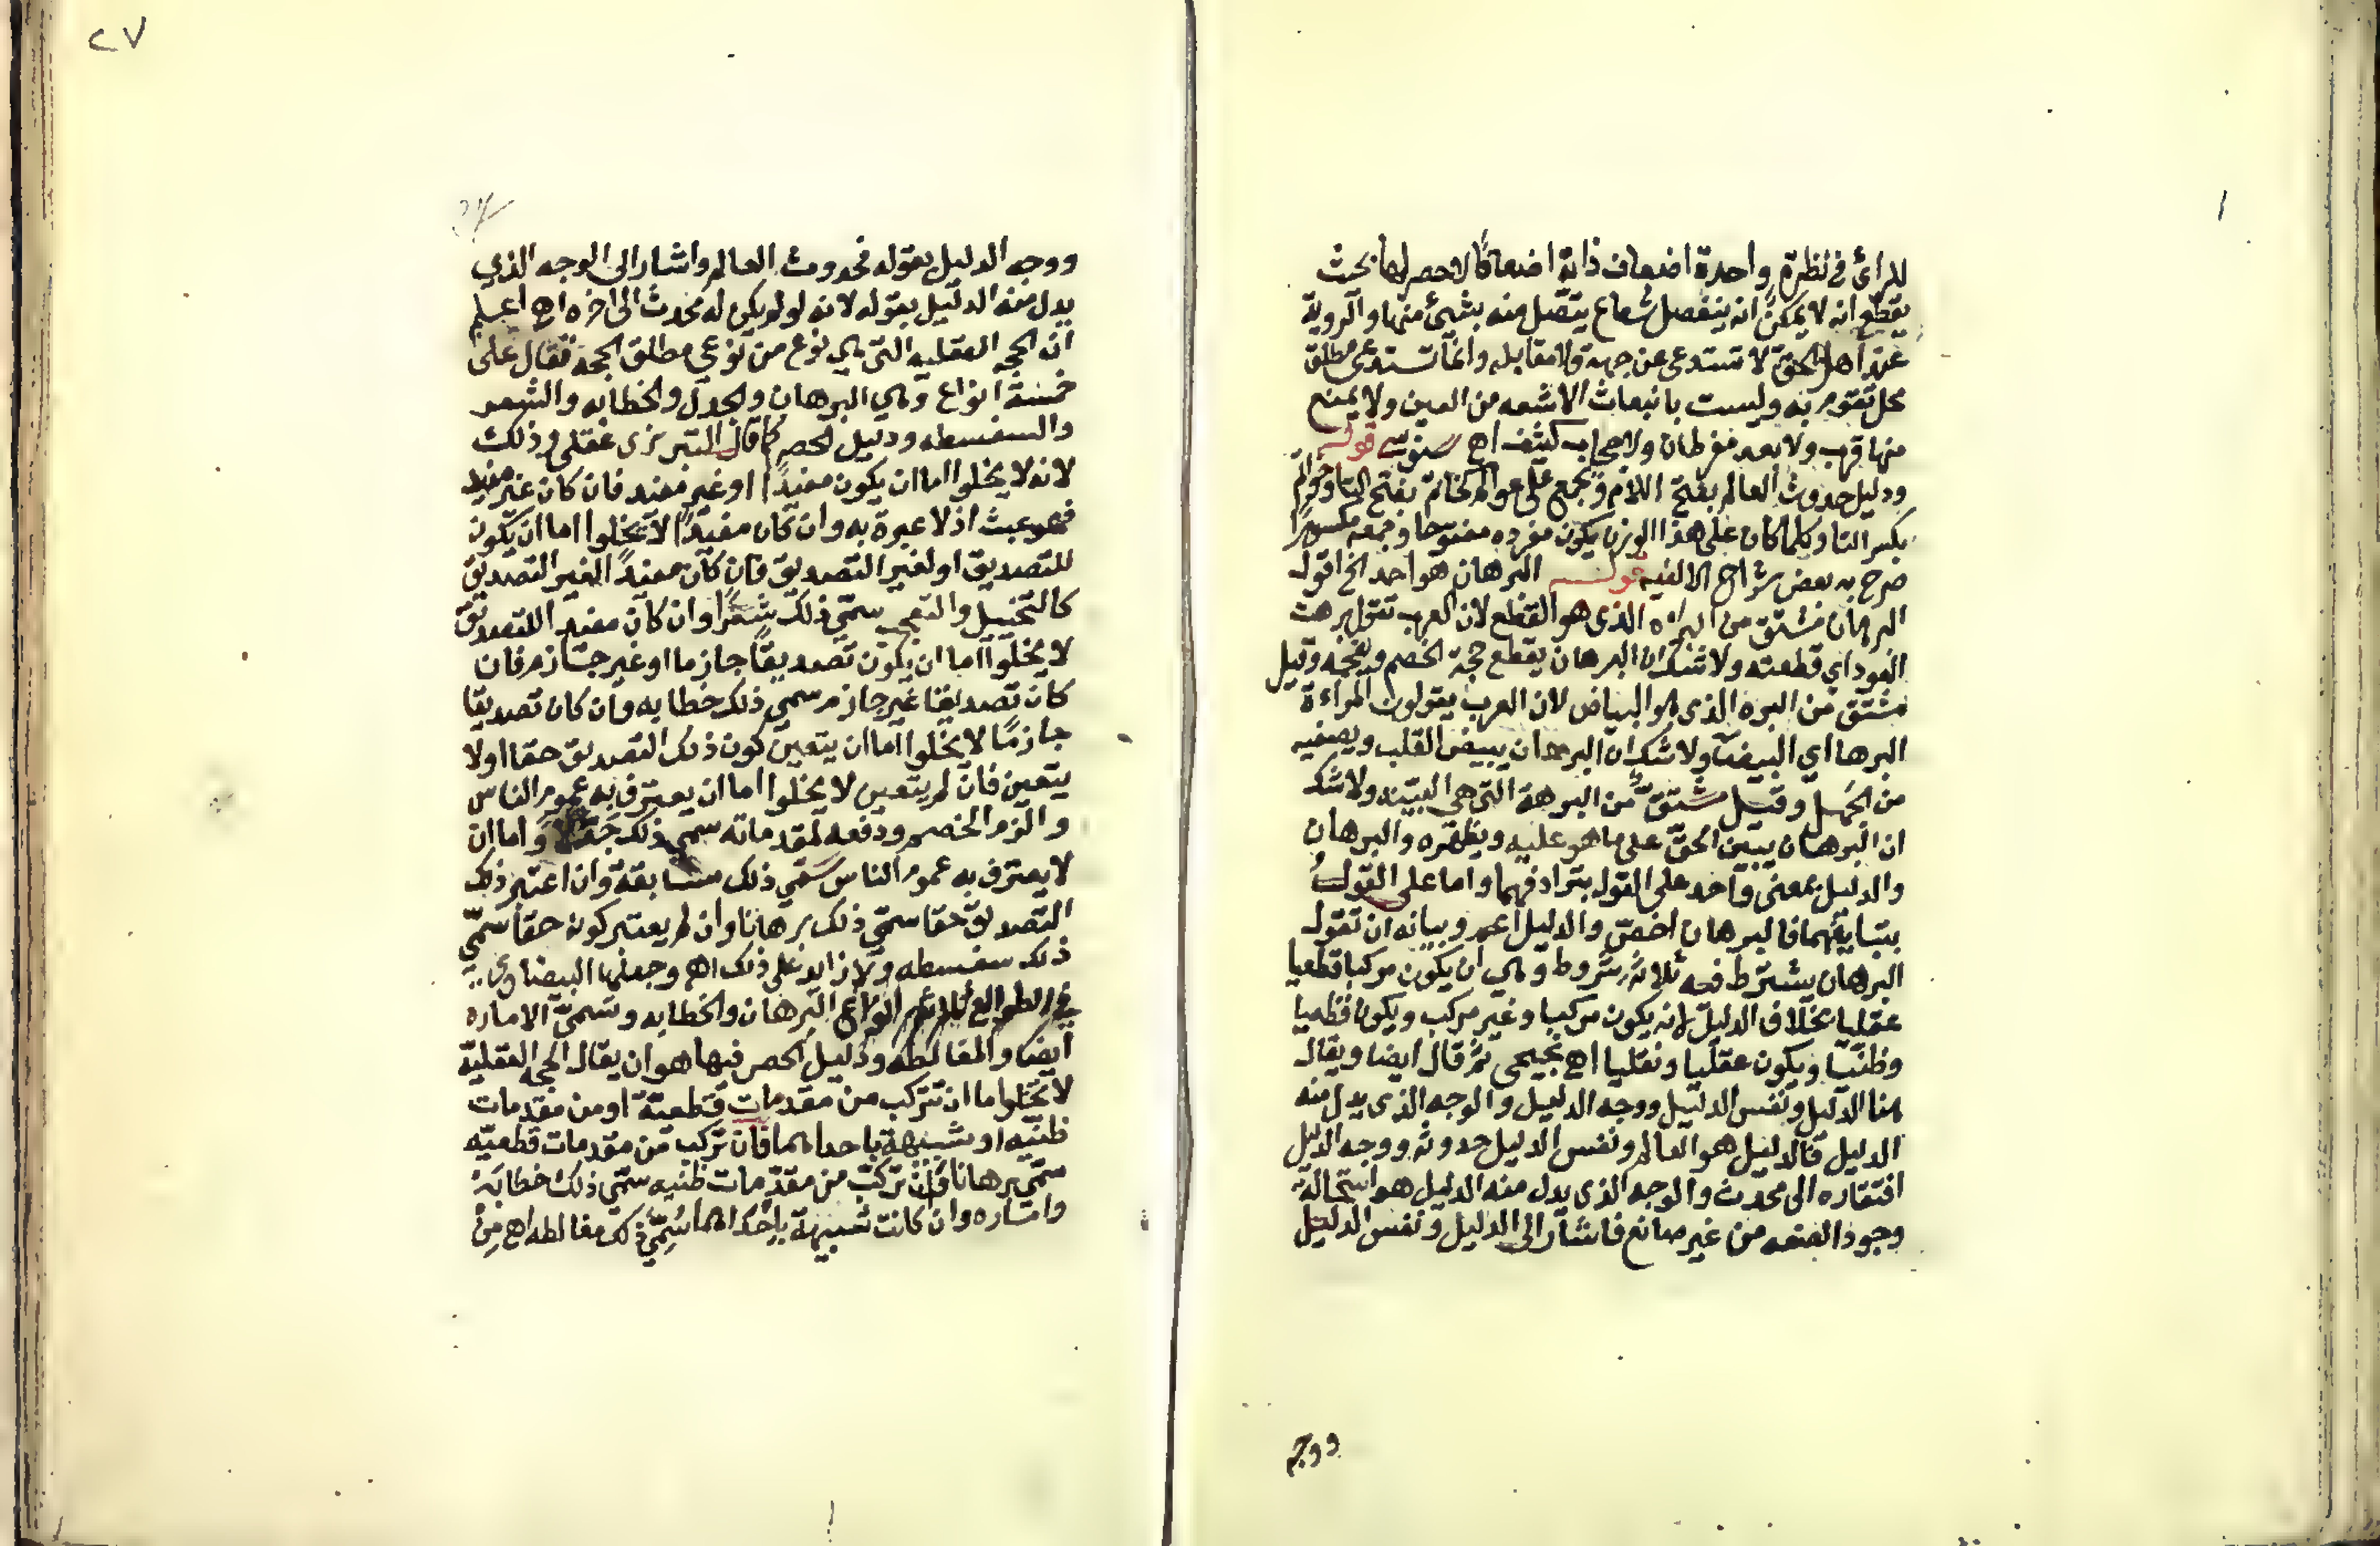 للرائ في نظرة واحدة اضعاف ذاته اضعافا لاحصر لها بحث
يقطع انه لا يمكن انه ينفصل شعاع يتصل منه بشيئ منها والروية
عند اهل الحق لا تستدعي عن جهة ولا مقابله وانما تستدعي مطلق
محل تقوم به وليست بانبعاث الاشعه من العين ولا يمنع
منها قرب ولا بعد مفرطان ولا حجاب كثيف اه سنوسي قوله
ودليل حدوث العالم بفتح اللام ويجمع على عوالم كخاتم بفتح التا وخواتم
بكسر التا وكلما كان على هذا الوزن يكون مفرده مفتوحا وجمعه مكسورا
صرح به بعض شراح الالفيه قوله البرهان هو احد الخ اقول
البرهان مشتق من البره الذي هو القطع لان العرب تقول برهت
العود اي قطعته ولا شك ان البرهان يقطع حجة الخصم وقيل
مشتق من البره الذي هو البياض لان العرب يقولون المراءة
البرها اي البيضا ولا شك ان البرهان يبيض القلب ويصفيه
من الجهل وقيل مشتق من البرهة التي هي البينه ولا شك
ان البرهان يبين الحق على ما هو عليه ويظهره والبرهان
والدليل بمعنى واحد على القول بترادفهما واما على القول
بتباينهما فالبرهان اخص والدليل اعم وبيانه ان تقول
البرهان يشترط فيه ثلاثة شروط وهي ان يكون مركبا قطعيا
عقليا بخلاف الدليل لانه يكون مركبا وغير مركب ويكون قطعيا
وظنيا ويكون عقليا ونقليا اه يجيحي ثم قال ايضا ويقال
هنا الدليل ونفس الدليل ووجه الدليل والوجه الذي يدل منه
الدليل فالدليل هو العالم ونفس الدليل حدوثه ووجه الدليل
افتقاره الى محدث والوجه الذي يدل منه الدليل هو استحالة
وجود الصنعه من غير صانع فاشار الى الدليل ونفس الدليل
ووجه
٢٧
ووجه الدليل بقوله فحدوث العالم واشار الى الوجه الذي
يدل منه الدليل بقوله لانه لو لم يكن له محدث الى اخره اه اعلم
ان الحجه العقليه التي هي نوع من نوعي مطلق الحجه فقال على
خمسة انواع وهي البرهان والجدل والخطابه والشعر
والسفسطه ودليل الحصر كما قال التبريزى عقلي وذلك
لانه لا يخلوا اما ان يكون مفيدا او غير مفيد فان كان غير مفيد
فهو عبث اذ لا عبرة به وان كان مفيدا لا يخلوا اما ان يكون
للتصديق او لغير التصديق فان كان مفيدا لغير التصديق
كالتخييل والتعجب سمي ذلك شعرا وان كان مفيدا للتصديق
لا يخلوا اما ان يكون تصديقا جازما او غير جازم فان
كان تصديقا غير جازم سمي ذلك خطابه وان كان تصديقا
جازما لا يخلوا اما ان يتعين كون ذلك التصديق حقا اولا
يتعين فان لم يتعين لا يخلوا اما ان يعترف به عموم الناس
والزم الخصم ودفعه لمقدماته سمي ذلك جدلا واما ان
لا يعترف به عموم الناس سمي ذلك وان اعتبر ذلك
التصديق حقا سمي ذلك برهانا وان لم يعتبر كونه حقا سمي
ذلك سفسطه ولا زايد على ذلك اه وجعلها البيضاوي
في الطوالع ثلاثة انواع البرهان والخطابه وتسمى الاماره
ايضا والمغالطه ودليل الحصر فيها هو ان يقال الحجه العقلية
لا تخلوا ما ان تتركب من مقدمات قطعية او من مقدمات
ظنيه او شبيهة باحداهما فان تركب من مقدمات قطعيه
سمي برهانا فان تركب من مقدمات ظنيه سمي ذلك خطابة
وامتاره وان كانت شبيهة باحداهما سمي ذلك مغالطه اه من